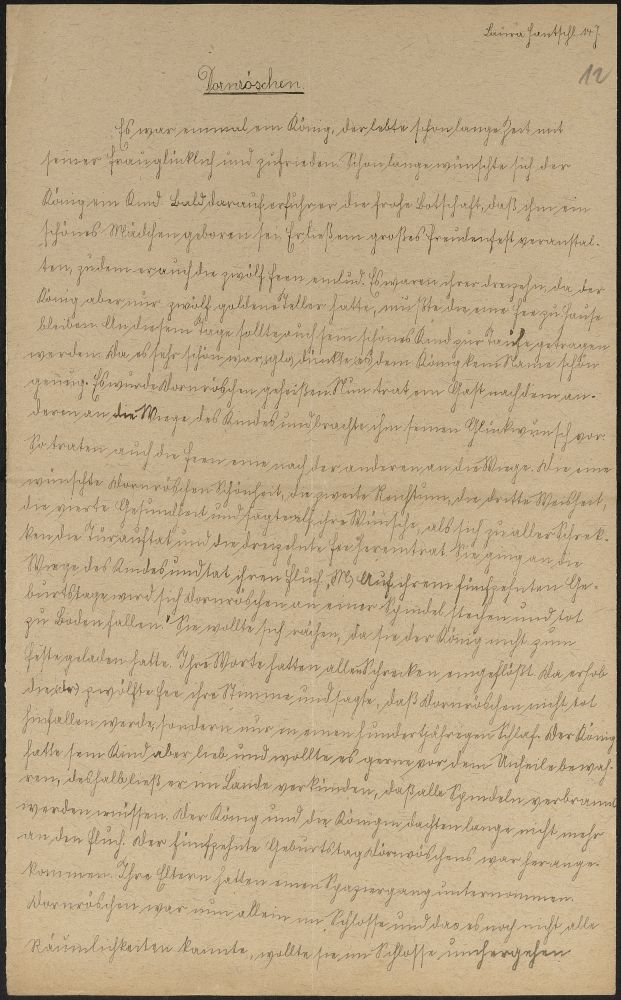 Laura Hantschl. 14 J.
12
Dornröschen.
Es war einmal ein König, der lebte schon lange Zeit mit
seiner Frau glücklich und zufrieden. Schon lange wünschte sich der
König ein Kind. Bald darauf erfuhr er die frohe Botschaft, daß ihm ein
schönes Mädchen geboren sei. Er ließ ein großes Freudenfest veranstal-
ten, zu dem er auch die zwölf Feen einlud. Es waren ihrer dreizehn, da der
König aber nur zwölf goldene Teller hatte, mußte die eine Fee zu Hause
bleiben. An diesem Tage sollte auch sein schönes Kind zur Taufe getragen
werden. Da es sehr schön war, dünkte es dem König kein Name schön
genug. Es wurde Dornröschen geheißen. Nun trat ein Gast nach dem an-
deren an die Wiege des Kindes und brachte ihm seinen Glückwunsch vor.
So traten auch die Feen eine nach der anderen an die Wiege. Die eine
wünschte Dornröschen Schönheit, die zweite Reichtum, die dritte Weisheit,
die vierte Gesundheit und sagten ihre Wünsche, als sich zu aller Schrek-
ken die Tür auftat und die dreizehnte Fee hereintrat. Sie ging an die
Wiege des Kindes und tat ihren Fluch. „Auf ihrem fünfzehnten Ge-
burtstage wird sich Dornröschen an einer Spindel stechen und tot
zu Boden fallen." Sie wollte sich rächen, da sie der König nicht zum
Feste geladen hatte. Ihre Worte hatten allen Schrecken eingeflößt. Da erhob
die zwölfte Fee ihre Stimme und sagte, daß Dornröschen nicht tot
hinfallen werde, sondern nur in einen hundertjährigen Schlaf. Der König
hatte sein Kind aber lieb und wollte es gerne vor dem Unheile bewah-
ren, deshalb ließ er im Lande verkünden, daß alle Spindeln verbrannt
werden müssen. Der König und die Königin dachten lange nicht mehr
an den Fluch. Der fünfzehnte Geburtstag Dörnröschens war herange-
kommen. Ihre Eltern hatten einen Spaziergang unternommen.
Dornröschen war nun allein im Schlosse und da es noch nicht alle
Räumlichkeiten kannte, wollte sie im Schlosse umhergehen